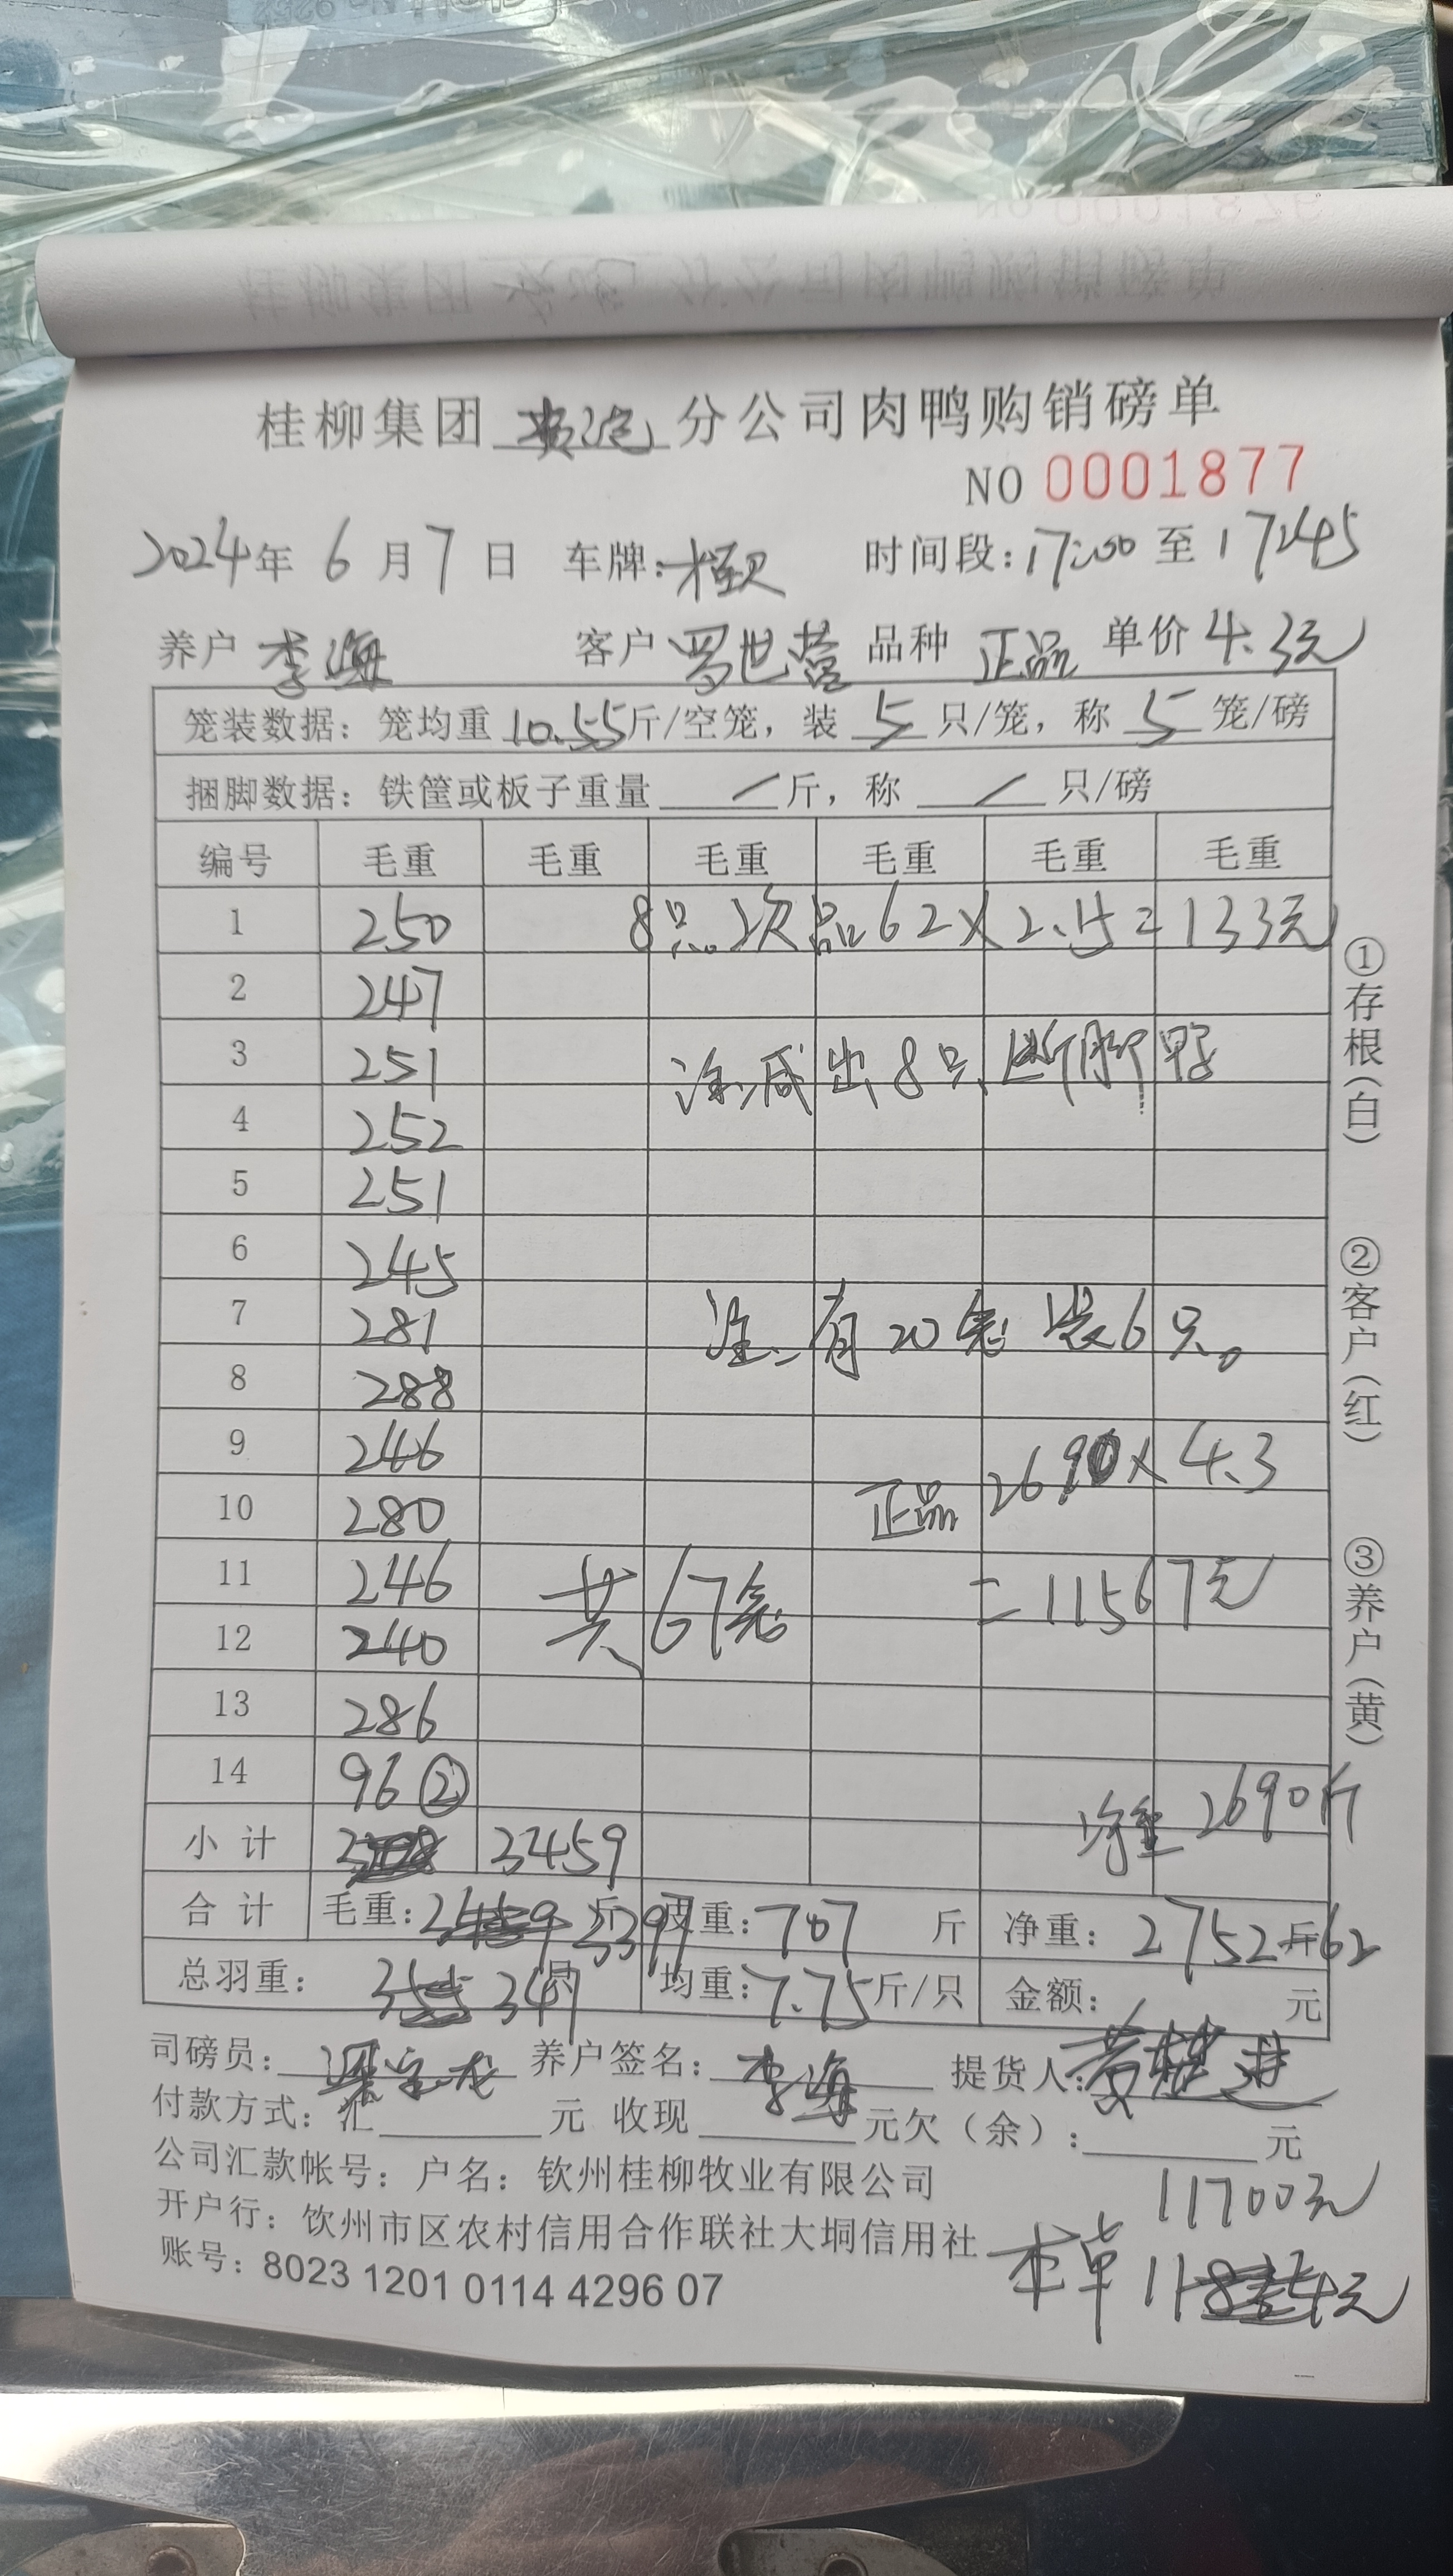 桂柳集团 分公司肉鸭购销磅单
NO 0001877
2024年 6 月 7 日 车牌: 时间段:17:00 至 17:45
养户 李海 客户 罗世营 品种 正品 单价 4.3元
笼装数据: 笼均重 10.55斤/空笼, 装 5 只/笼, 称 5 笼/磅
捆脚数据: 铁筐或板子重量 / 斤, 称 / 只/磅
编号 毛重 毛重 毛重 毛重 毛重 毛重
1 250 8只次品62×2.15=133元
2 247
3 251 减出8只断脚鸭
4 252
5 251
6 245
7 281 注、有20笼装6只。
8 288
9 246 正品2690×4.3
10 280
11 246 共67笼 =11567元
12 240
13 286
14 96②
净重2690斤
小计 3459
合计 毛重: 斤 3397 皮重:707 斤 净重: 2752斤62
总羽重: 347 均重:7.75斤/只 金额: 元
司磅员: 养户签名:李海 提货人:
付款方式: 汇 元 收现 元欠(余): 元
公司汇款帐号: 户名: 钦州桂柳牧业有限公司
11700元
开户行: 饮州市区农村信用合作联社大垌信用社
本单
账号: 8023 1201 0114 4296 07
①存根(白) ②客户(红) ③养户(黄)